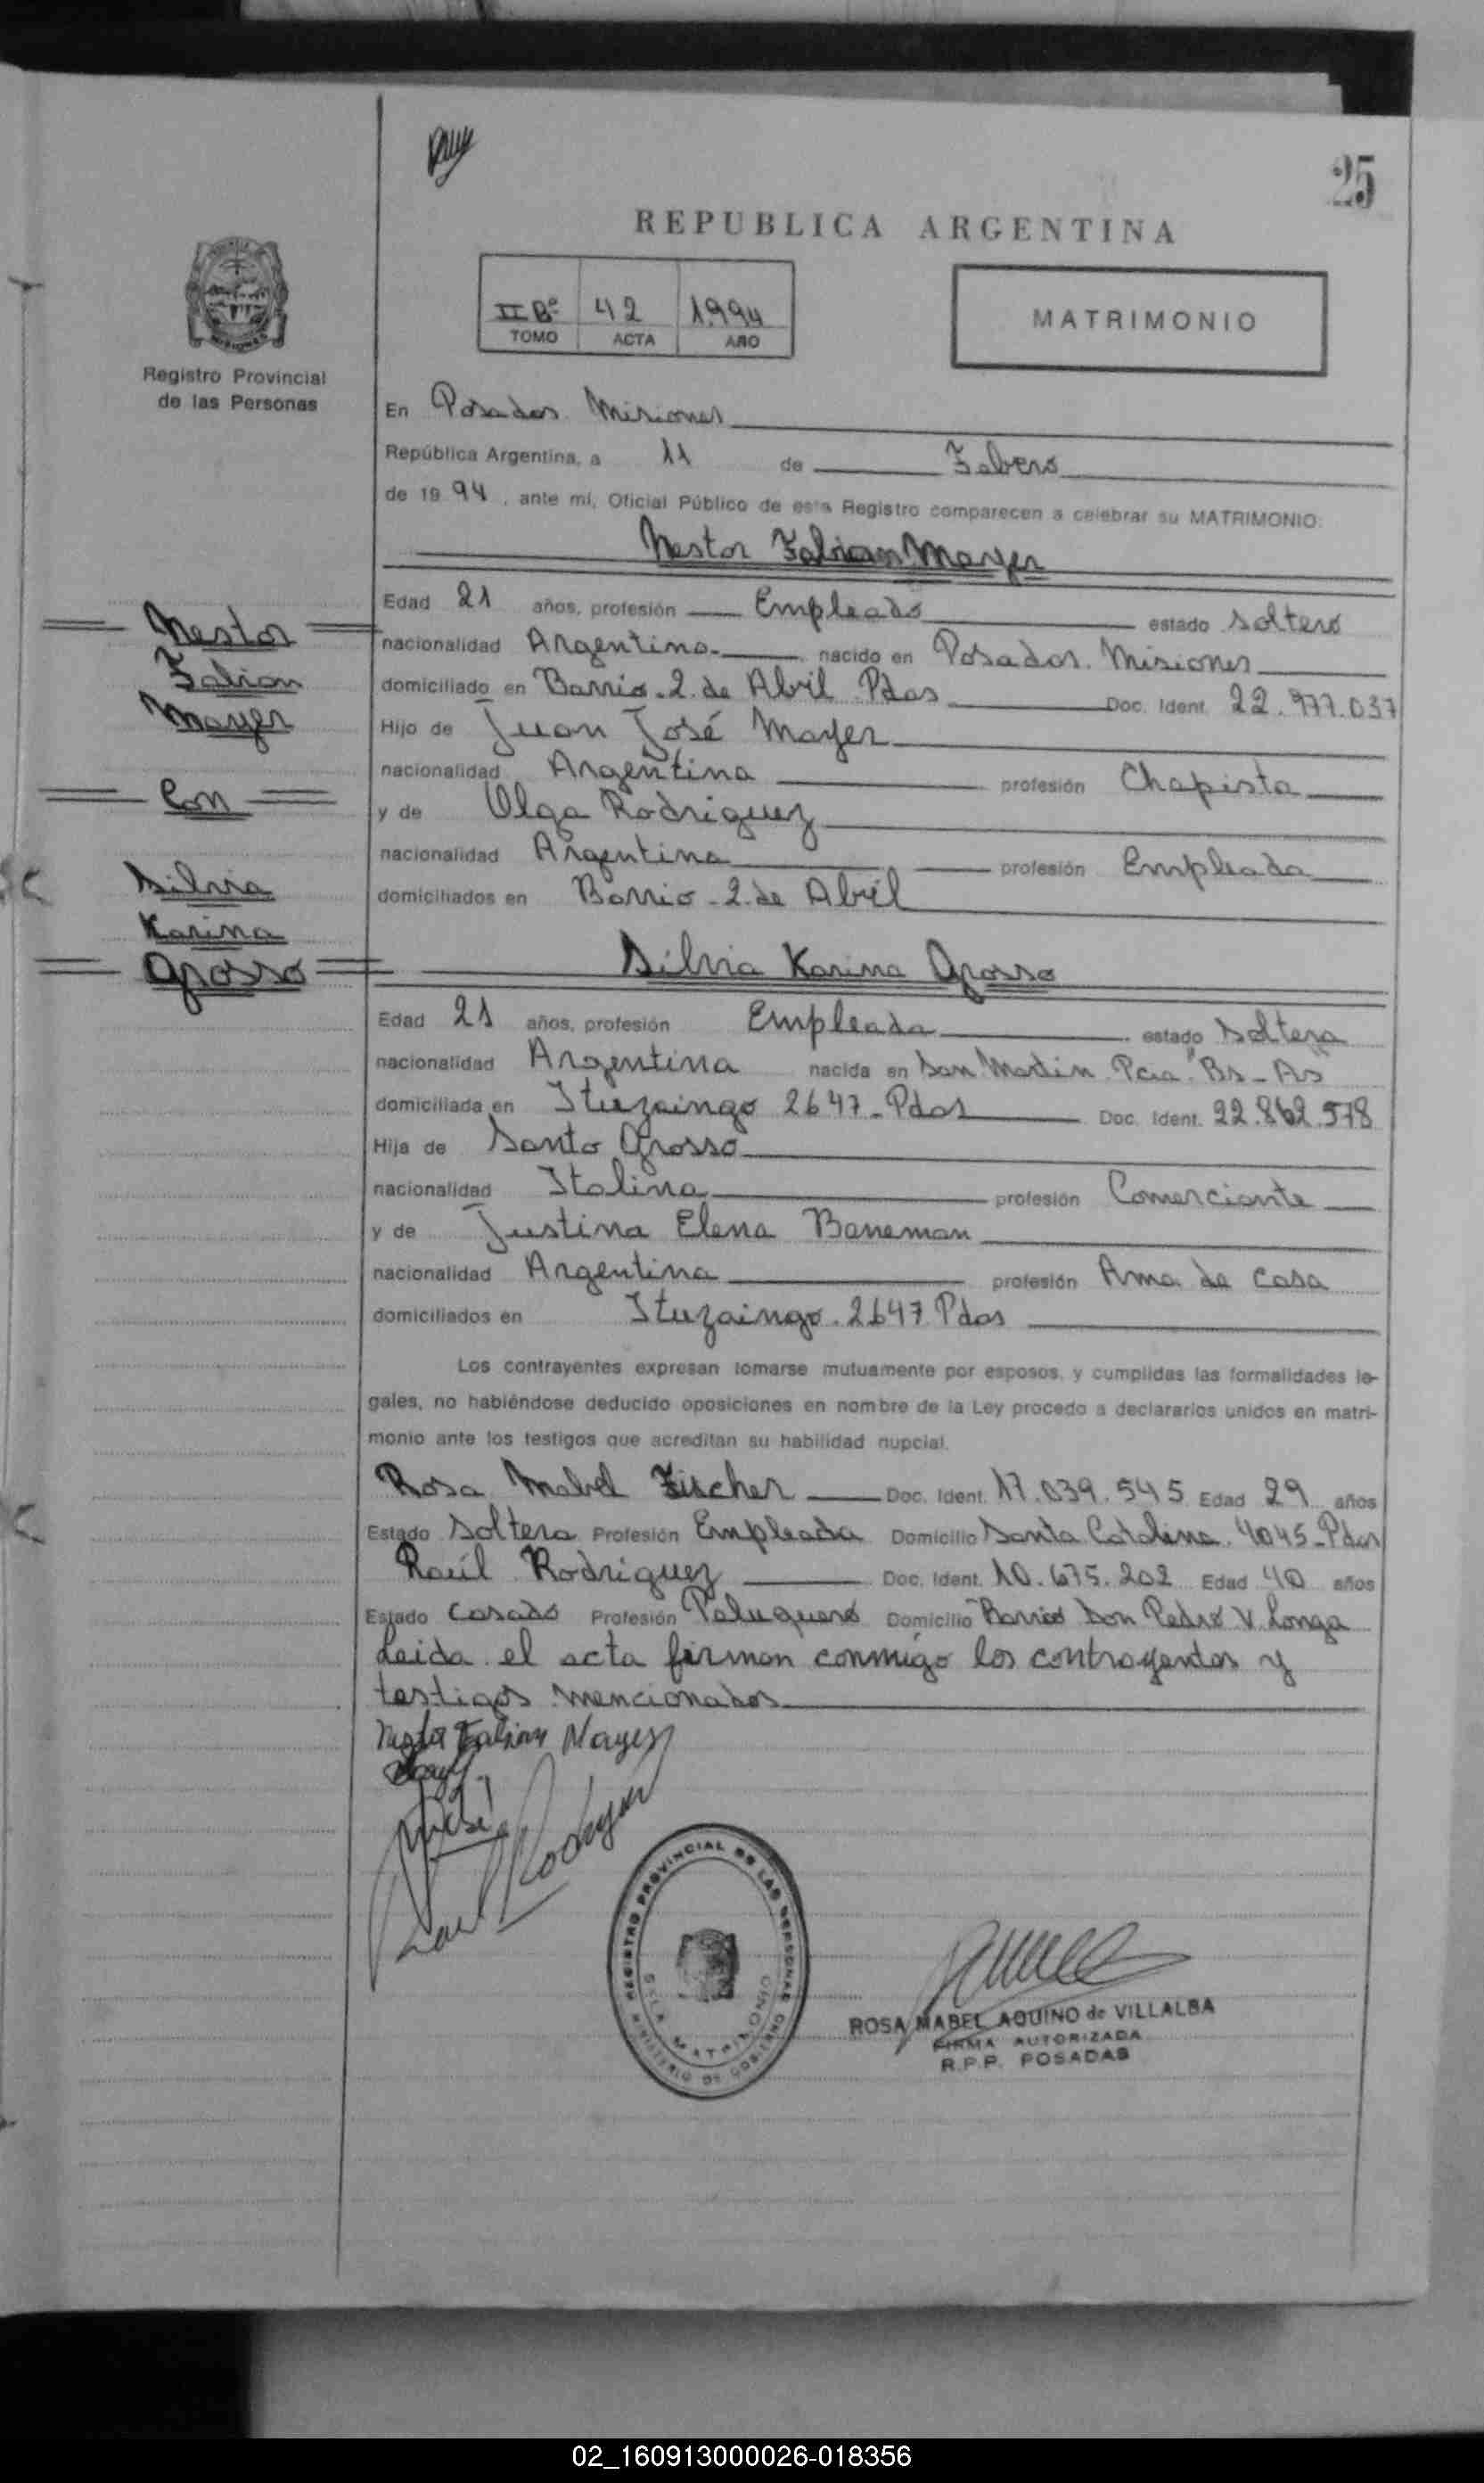 25
REPUBLICA ARGENTINA
II Bº 42 1994
TOMO ACTA AÑO
MATRIMONIO
Registro Provincial
de las Personas
En Posadas Misiones
República Argentina, a 11 de Febero
de 19 94, ante mí, Oficial Público de esta Registro comparecen a celebrar su MATRIMONIO:
Nestor Fabian Mayer
Edad 21 años, profesión Empleado estado Soltero
nacionalidad Argentino nacido en Posadas. Misiones
domiciliado en Barrio 2 de Abril Pdas Doc. Ident. 22.977.037
Hijo de Juan José Mayer
nacionalidad Argentina profesión Chapista
y de Olga Rodriguez
nacionalidad Argentina profesión Empleada
domiciliados en Barrio 2 de Abril
Nestor
Fabian
Mayer
Con
Silvia
Karina
Grosso
Silvia Karina Grosso
Edad 21 años, profesión Empleada estado Soltera
nacionalidad Argentina nacida en San Martin Pcia. Bs-As
domiciliada en Ituzaingo 2647-Pdas Doc. Ident. 22.862.578
Hija de Santo Grosso
nacionalidad Italina profesión Comerciante
y de Justina Elena Baneman
nacionalidad Argentina profesión Ama de casa
domiciliados en Ituzaingo 2647 Pdas
Los contrayentes expresan tomarse mutuamente por esposos, y cumplidas las formalidades le-
gales, no habiéndose deducido oposiciones en nombre de la Ley procedo a declararlos unidos en matri-
monio ante los testigos que acreditan su habilidad nupcial.
Rosa Mabel Fischer Doc. Ident. 17.039.545 Edad 29 años
Estado Soltera Profesión Empleada Domicilio Santa Catalina 4045-Pdas
Raúl Rodriguez Doc. Ident. 10.675.202 Edad 40 años
Estado Casado Profesión Paluquero Domicilio Barrio Don Pedro V. Longa
Leida el acta firman conmigo los contrayentes y
testigos mencionados
Fabian Mayer
Raul Rodriguez
REGISTRO PROVINCIAL DE LAS PERSONAS
MATRIMONIO
MINISTERIO DE GOBIERNO
ROSA MABEL AQUINO de VILLALBA
FIRMA AUTORIZADA
R.P.P. POSADAS
02_160913000026-018356